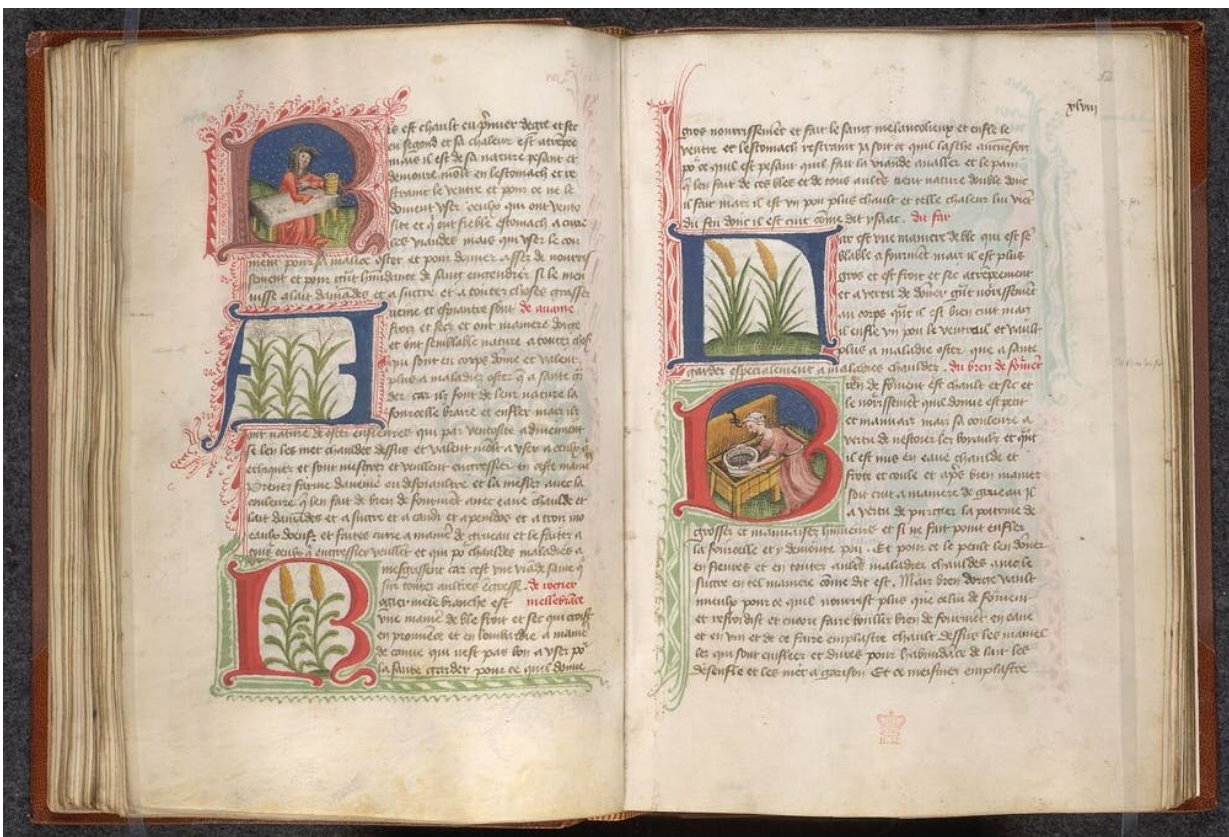 is est chault en p̄mier degre et sec
en segond et sa chaleur est atrēpee
mais il est de sa nature pesant et
demoure mōlt en lestomach et re
straint le ventre et pour ce ne le
doivent vser ceulp qui ont vento
site et q̇ ont fieble estomach a cuire
ces viandes mais qui vser le con
ment pour sa malice oster et pour donner assez de nourris
sement et pour gn̄t habundance de sanc engendrer si le men
iusse a lait damādes et a succre et a toutes choses grasses
ueine et espiautre sont de auaine
frois et secz et ont maniere dorge
et ont semblable nature a toutes chos
qui sont en corps dōme et valent
plus a maladies oster q̄ a sante gar
der car ilz sont de leur nature la
fourcelle braire et enfler mais ilz
ont nature de oster enfleures qui par ventosite aduiennent
se len les met chauldes dessus et valent mōlt a vser a ceulp q̄
ethiques et sont mesgres et veullent engressier en ceste manie
Prenez farine dauene ou despiaultre et la meslez auec la
couleure q̄ len fait de bren de fourment auec eaue chaulde et
lait damādes et a succre et a candi et a penides et a trois mo
eaulx doeufz et faites cuire a maniē de grueau et le faites a
tous ceulp a engressier veullēt et qui po᷑ chauldes maladies a
mesgrissent car cest vne viāde saine q̄
sur toutes aultres ēgresse. de rogier
ogier mele branche est mellebrāce
vne maniē de ble froit et sec qui croist
en prouuēce et en lombardie a maniē
de canne qui nest pas bon a vser po᷑
la sante garder pour ce quil donne
xlviii
gros nourrissemēt et fait le sang melancolieux et enfle le
ventre et lestomach restraint ja soit ce quil lasche aucunefois
po᷑ ce quil est pesant quil fait la viande aualler et le pain
q̄ len fait de ces bles et de tous aultēs tient nature double donc
il fait mais il est vn pou plus chault et telle chaleur lui viēt
du feu donc il est cuit cōme dit ysaac. du far
ar est vne maniere de ble qui est sē
blable a fourmēt mais il est plus
gros et est froit et sec atrēpeement
et a vertu de dōner gn̄t nōrissement
au corps que il est bien cuit mais
il enfle vn pou le ventrail et vault
plus a maladie oster que a sante
garder especialement a maladies chauldes. du bren de fōmēt
ren de fōment est chault et sec et
le nōrissement quil donne est petit
et mauuais mais sa couleure a
vertu de nestoier les boyaulx et q̄nt
il est mis en eaue chaulde et
frote et coule et apēs bien manier
soit cuit a maniere de grueau il
a vertu de purgier la poitrine de
grosses et mauuaises humeurs et si ne fait point enfler
la fourcelle et y demoure pou. Et pour ce le peult len dōner
en fieures et en toutes aultēs maladies chauldes auec le
succre en tel maniere cōme dit est. Mais bren dorge vault
mieulx pour ce quil nourrist plus que celui de fōment
et refroidist et encore faire boullir bren de fourment en eaue
et en vin et de ce faire emplastre chault dessus les mamel
les qui sont enflees et dures pour lhabundāce de lait les
desenfle et les met a garison Et ce meismes emplastre